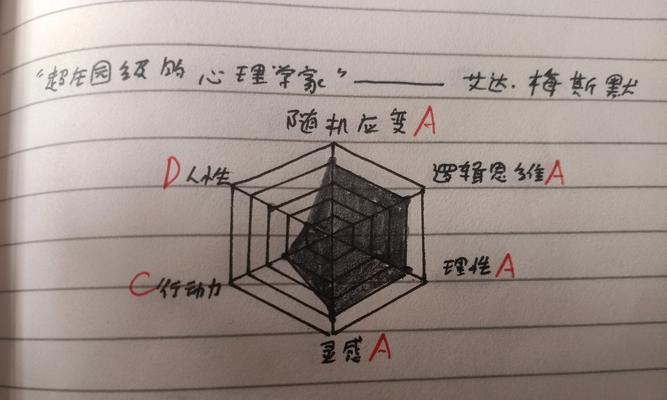 “超庄园级的心理学家”—— 艾达·梅斯默
随机应变A
D人性
逻辑思维A
C行动力
理性A
灵感A